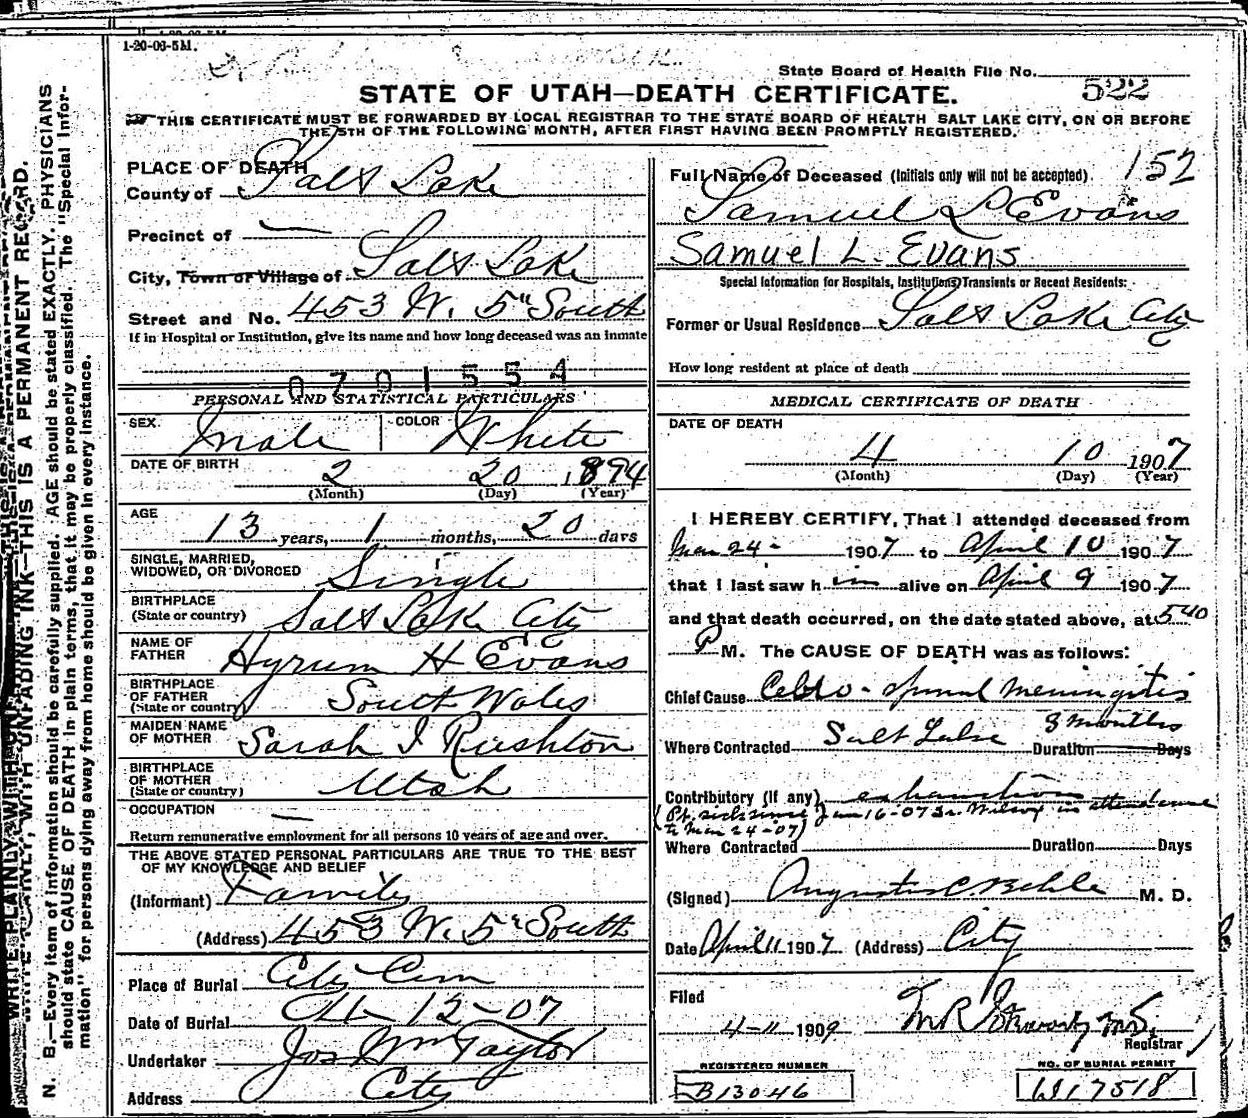 1-20-06-5M.
State Board of Health File No. 522
STATE OF UTAH—DEATH CERTIFICATE.
THIS CERTIFICATE MUST BE FORWARDED BY LOCAL REGISTRAR TO THE STATE BOARD OF HEALTH SALT LAKE CITY, ON OR BEFORE
THE 5TH OF THE FOLLOWING MONTH, AFTER FIRST HAVING BEEN PROMPTLY REGISTERED.
WRITE PLAINLY, WITH UNFADING INK—THIS IS A PERMANENT RECORD.
N. B.—Every item of information should be carefully supplied. AGE should be stated EXACTLY. PHYSICIANS
should state CAUSE OF DEATH in plain terms, that it may be properly classified. The "Special Infor-
mation" for persons dying away from home should be given in every instance.
PLACE OF DEATH
County of Salt Lake
Precinct of —
City, Town or Village of Salt Lake
Street and No. 453 W. 5" South
If in Hospital or Institution, give its name and how long deceased was an inmate
0701554
PERSONAL AND STATISTICAL PARTICULARS
SEX Male COLOR White
DATE OF BIRTH 2 20 1894
(Month) (Day) (Year)
AGE 13 years, 1 months, 20 days
SINGLE, MARRIED,
WIDOWED, OR DIVORCED Single
BIRTHPLACE
(State or country) Salt Lake City
NAME OF
FATHER Hyrum H Evans
BIRTHPLACE
OF FATHER
(State or country) South Wales
MAIDEN NAME
OF MOTHER Sarah J Rushton
BIRTHPLACE
OF MOTHER
(State or country) Utah
OCCUPATION —
Return remunerative employment for all persons 10 years of age and over.
THE ABOVE STATED PERSONAL PARTICULARS ARE TRUE TO THE BEST
OF MY KNOWLEDGE AND BELIEF
(Informant) Family
(Address) 453 W. 5" South
Place of Burial City Cem
Date of Burial 4-12-07
Undertaker Jos Wm Taylor
Address City
152
Full Name of Deceased (Initials only will not be accepted).
Samuel L Evans
Samuel L. Evans
Special Information for Hospitals, Institutions, Transients or Recent Residents:
Former or Usual Residence Salt Lake City
How long resident at place of death
MEDICAL CERTIFICATE OF DEATH
DATE OF DEATH
4 10 1907
(Month) (Day) (Year)
I HEREBY CERTIFY, That I attended deceased from
Mar 24- 1907 to April 10 1907
that I last saw him alive on April 9 1907
and that death occurred, on the date stated above, at 540
P M. The CAUSE OF DEATH was as follows:
Chief Cause Cebro-spinal meningitis
Where Contracted Salt Lake Duration 3 months Days
Contributory (if any) exhaustion
(Pt. sick since Jan 16-07 Dr. Wilcox in attendance
to Mar 24-07)
Where Contracted Duration Days
(Signed) Augustus C Behle M. D.
Date April 11 1907 (Address) City
Filed
4-11 1909
Registrar
REGISTERED NUMBER
B13046
NO. OF BURIAL PERMIT